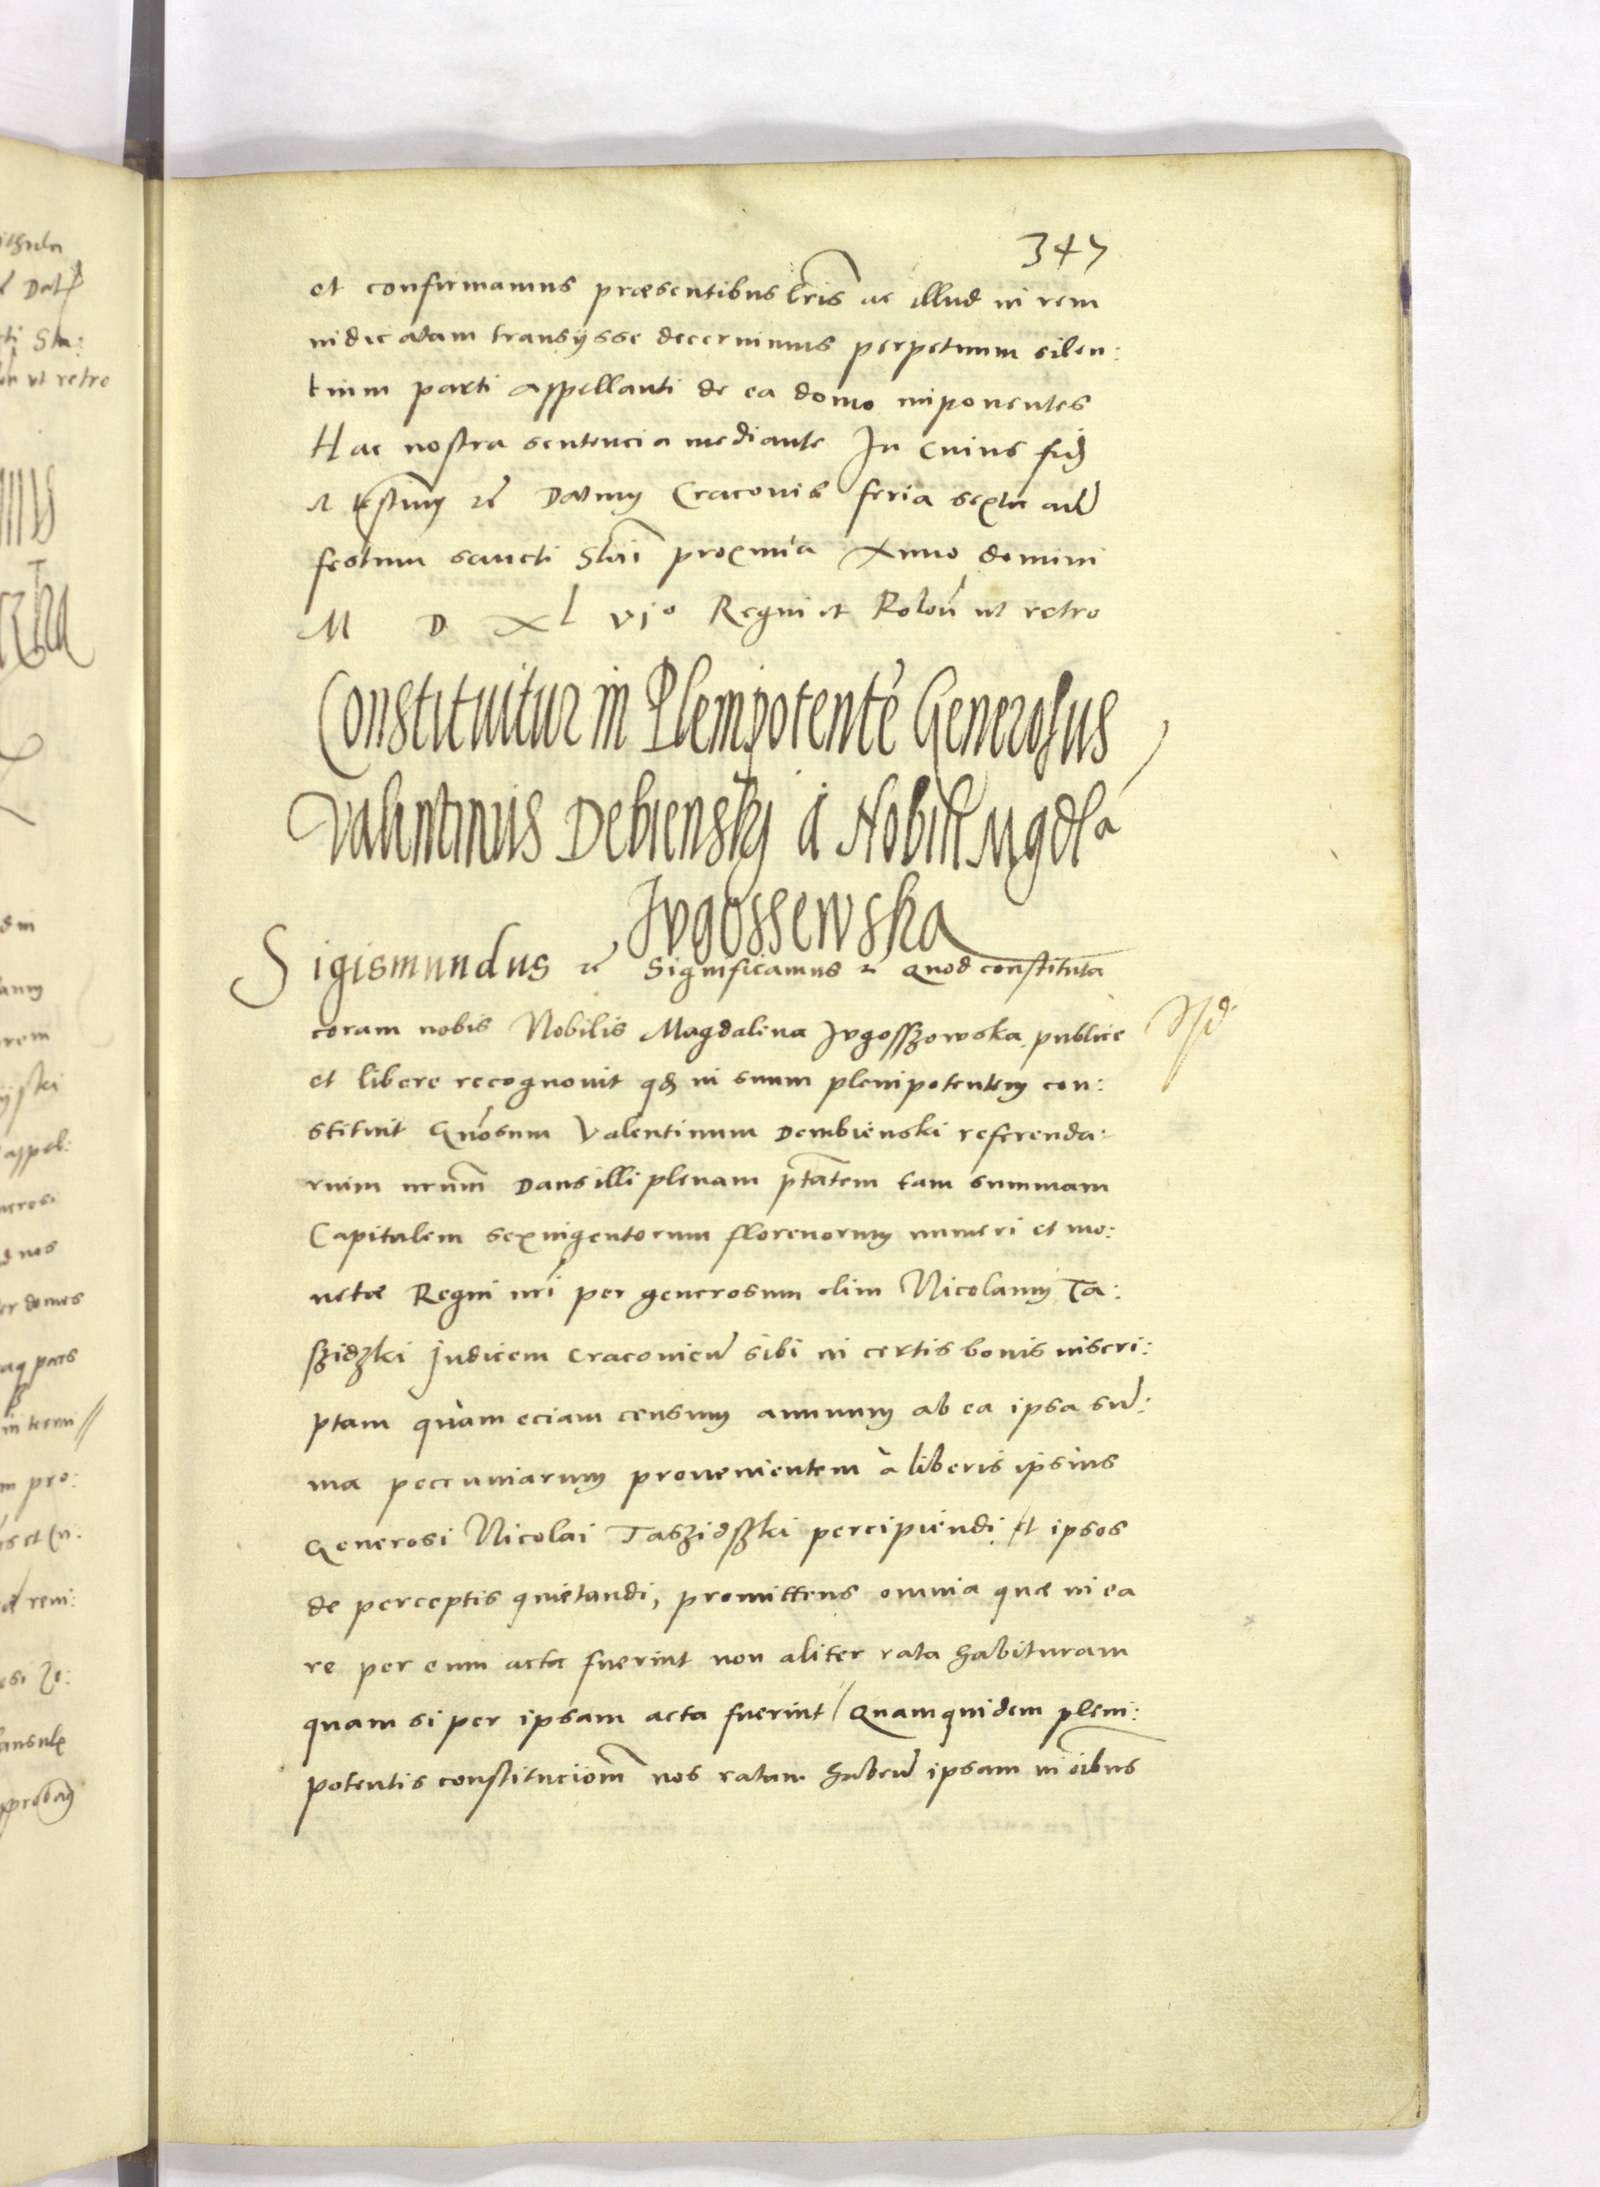 347
et confirmamus præsentibus lr̃is ac illud in rem
iudicatam transysse decernimus perpetuum silen:
tium parti appellanti de ea domo imponentes
Hac nostra sentencia mediante In cuius fid
et testm̃ Datum Cracoviæ feria sexta
festum sancti Stai proxima Anno domini
M D XL VIº Regni ut retro
Constituitur in Plempotente Generosus
Valentinus Debiensky à Nobili Mgdla
Jvgossewska
Sigismundus Significamus Quod constituta
coram nobis Nobilis Magdalena Jvgosszowska publice
et libere recognovit in suum plenipotentem con:
stituit Gnosum Valentinum Dembienski referenda:
rium nrum Dans illi plenam ptatem eam summam
Capitalem sexingentorum florenorum numeri et mo:
netæ Regni nri per generosum olim Nicolaum Ta:
szidzki Judicem Cracovien sibi in certis bonis inscri:
ptam quam eciam censum annuum ab ea ipsa sum:
ma pecuniarum provenientem à liberis ipsius
Generosi Nicolai Taszidszki percipiendi et ipsos
de perceptis quietandi, promittens omnia quæ in ea
re per eum acta fuerint non aliter rata habituram
quam si per ipsam acta fuerint / Quamquidem pleni:
potentis constitucionẽ nos ratam haben ipsam in oibus